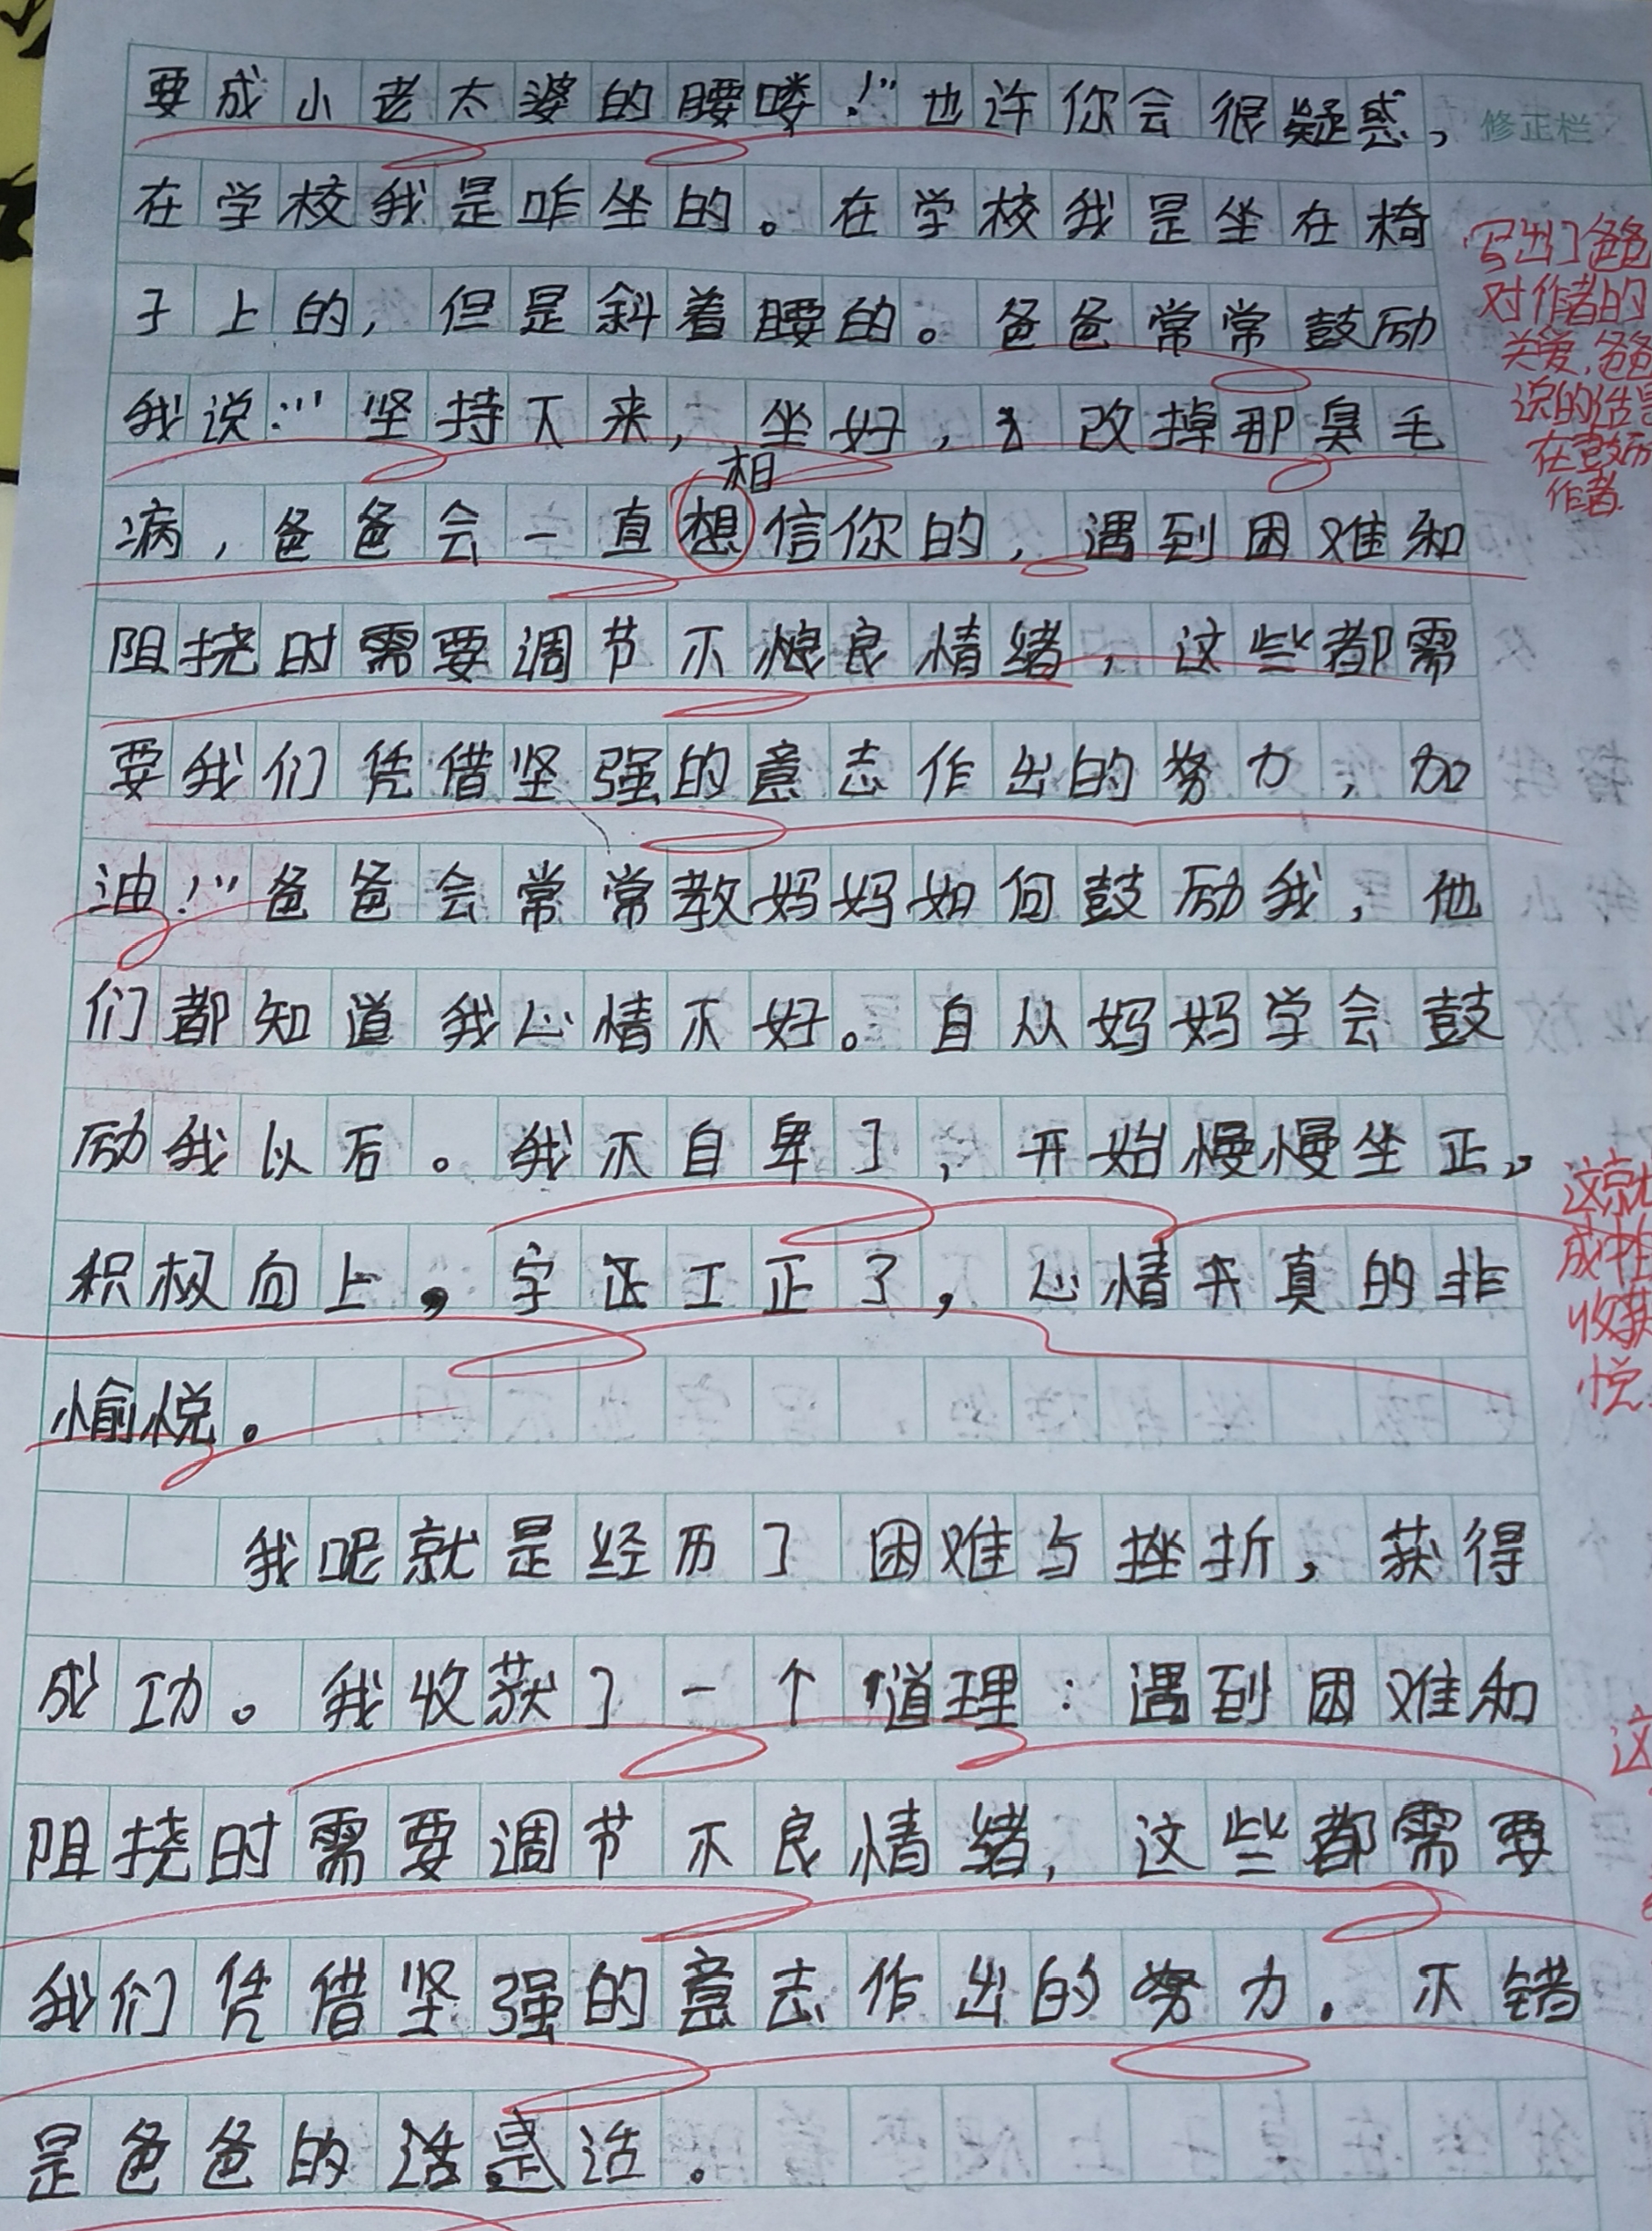 要成小老太婆的腰喽！”也许你会很疑惑，
修正栏
在学校我是咋坐的。在学校我是坐在椅
子上的，但是斜着腰的。爸爸常常鼓励
我说：“坚持下来，坐好，改掉那臭毛
相
病，爸爸会一直想信你的，遇到困难和
阻挠时需要调节不良情绪，这些都需
要我们凭借坚强的意志作出的努力，加
油！”爸爸会常常教妈妈如何鼓励我，他
们都知道我心情不好。自从妈妈学会鼓
励我以后。我不自卑了，开始慢慢坐正，
积极向上，字正工正了，心情天真的非
愉悦。
我呢就是经历了困难与挫折，获得
成功。我收获了一个道理：遇到困难和
阻挠时需要调节不良情绪，这些都需要
我们凭借坚强的意志作出的努力。不错
是爸爸的话是话。
写出了爸爸
对作者的
关爱，爸爸
说的话是
在鼓励
作者.
这就
成
收获
悦
这